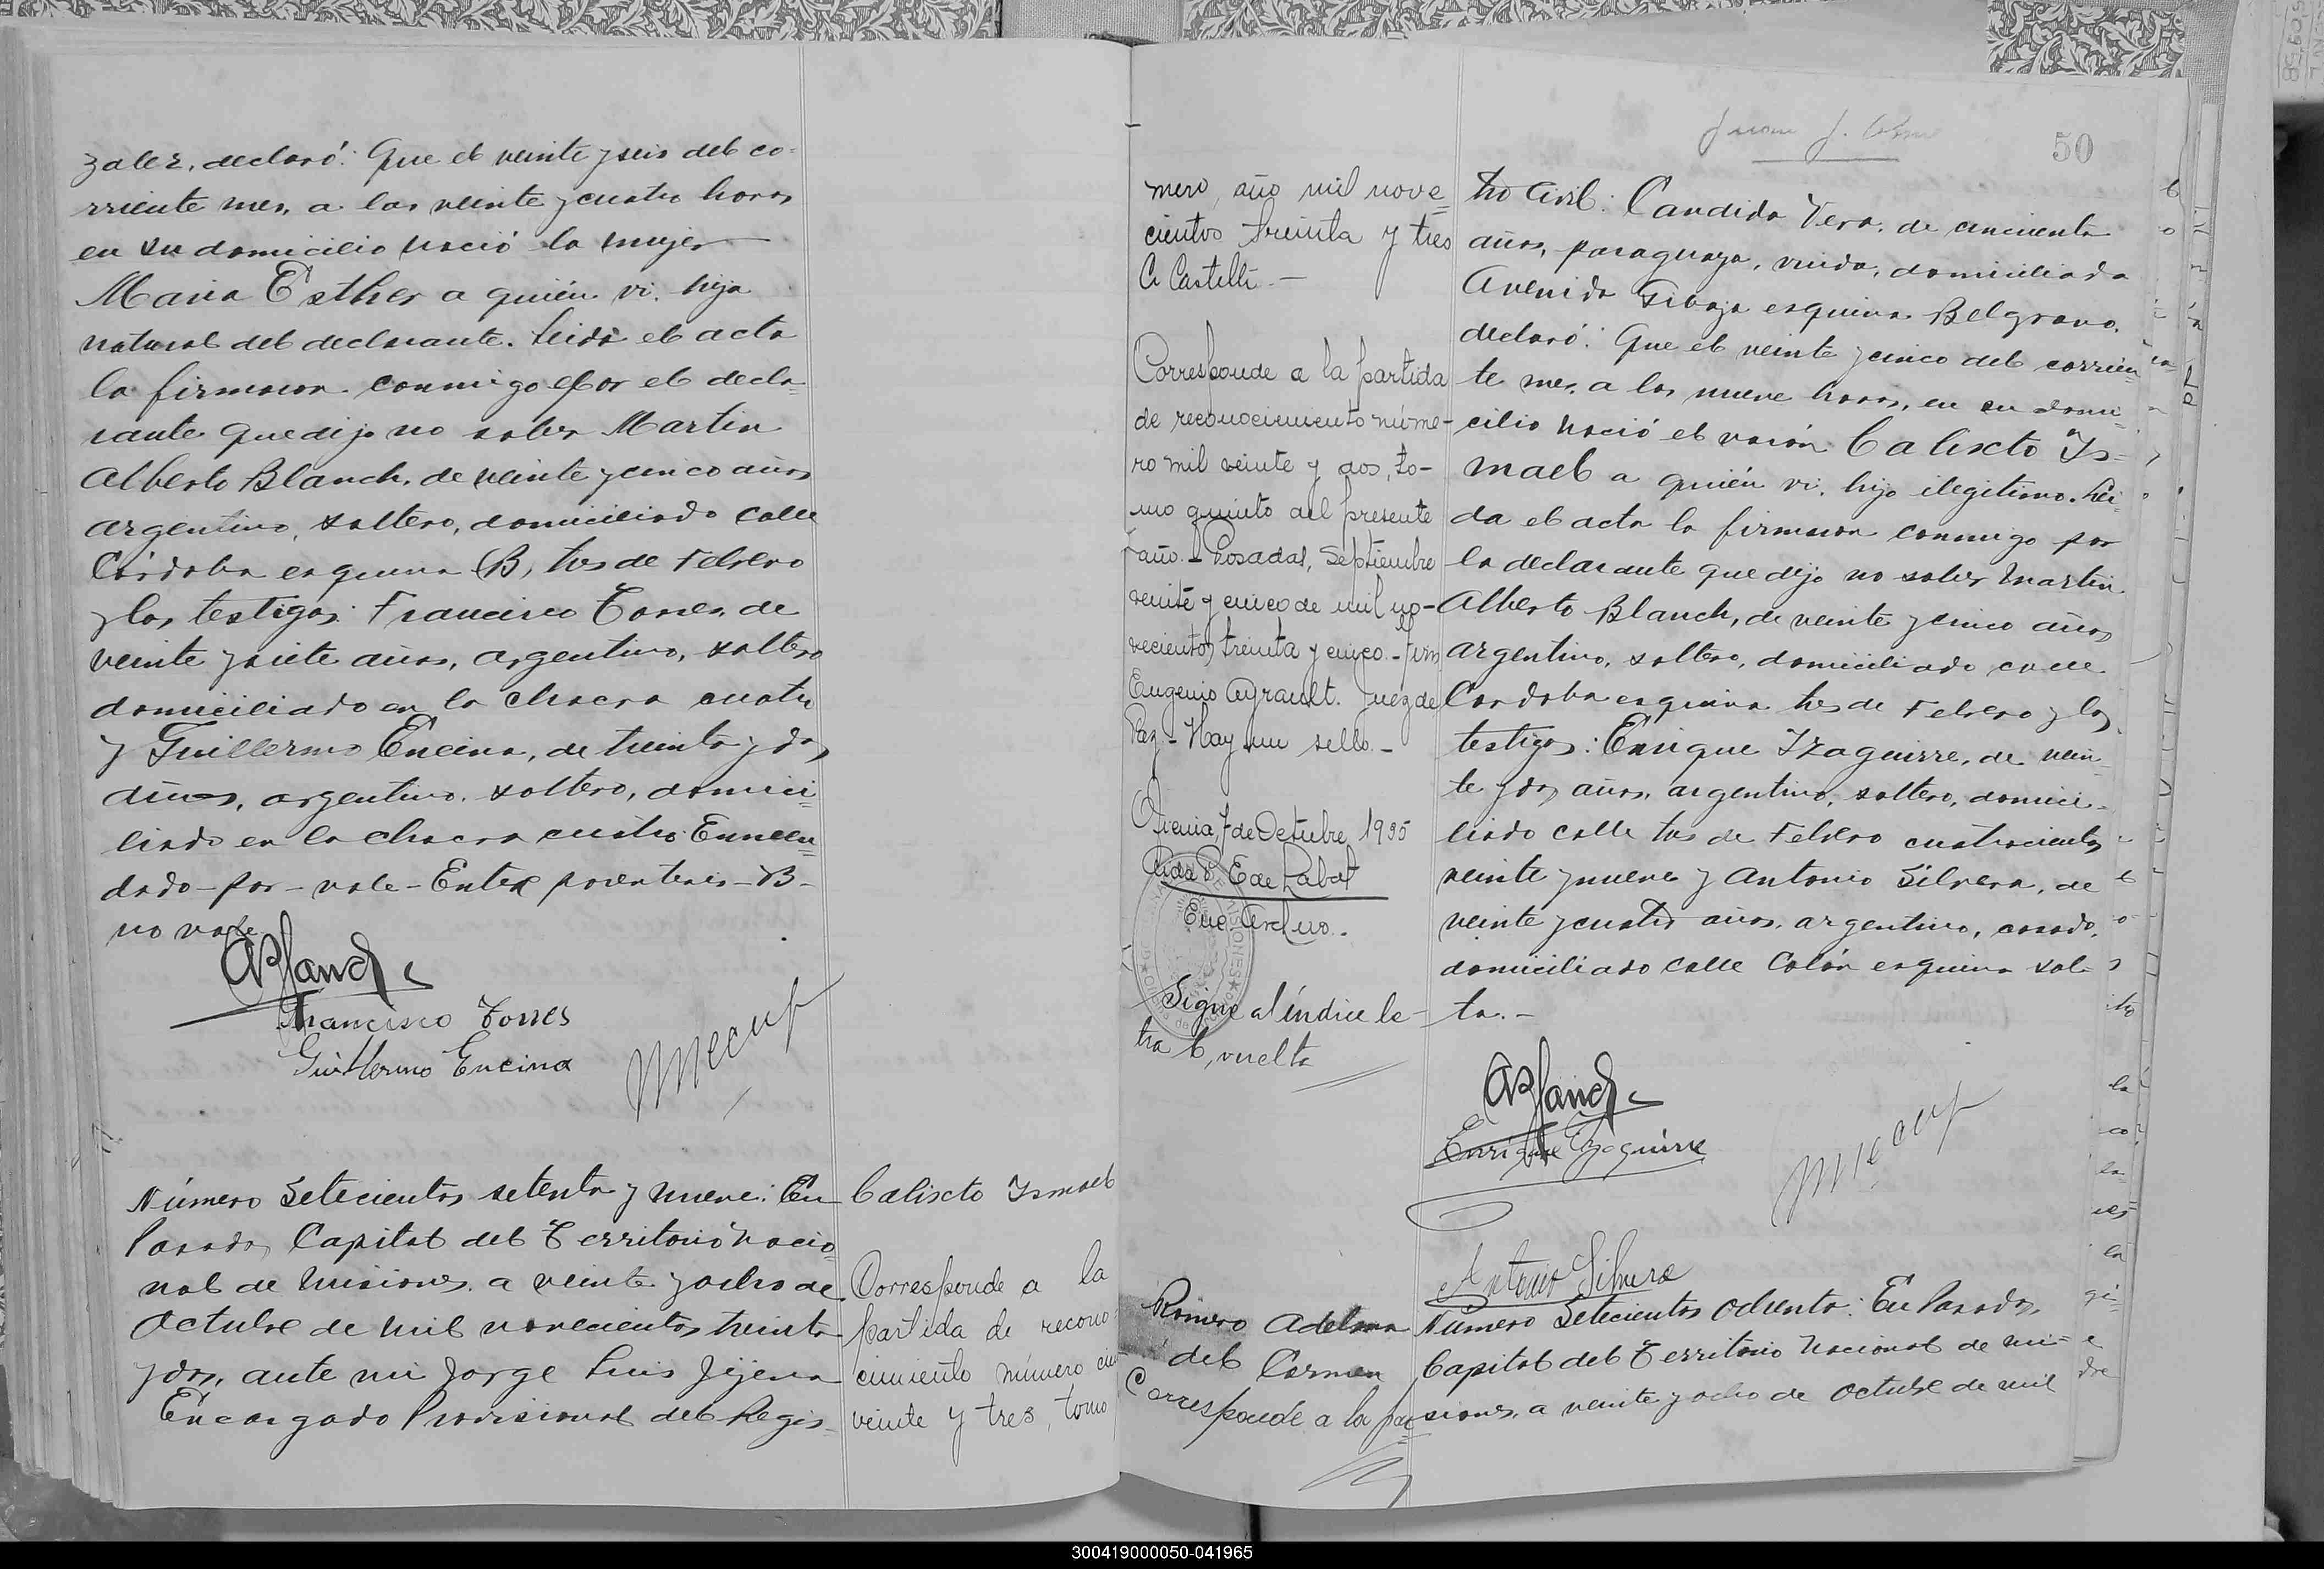 zalez, declaró: Que el veinte y seis del co-
rriente mes, a las veinte y cuatro horas
en su domicilio nació la mujer
Maria Esther a quién vi, hija
natural del declarante. Leida el acta
la firmaron conmigo por el decla-
rante que dijo no saber Martin
Alberto Blanch, de veinte y cinco años
argentino, soltero, domiciliado calle
Córdoba esquina (B) tres de Febrero
y los testigos: Francisco Torres, de
veinte y siete años, argentino, soltero
domiciliado en la chacra cuatro
y Guillermo Encina, de treinta y dos
años, argentino, soltero, domici-
liado en la chacra cuatro. Enmen-
dado - por - vale - Entre parentesis - B -
no vale
ABlanch
Francisco Torres
Guillermo Encina
Número Setecientos setenta y nueve: En
Posadas, Capital del Territorio Nacio-
nal de Misiones, a veinte y ocho de
Octubre de mil novecientos treinta
y dos, ante mi Jorge Luis Jijena
Encargado Provisional del Regis-
Calixto Ismael
Corresponde a la
partida de recono-
cimiento número
veinte y tres, tomo
50
mero, año mil nove-
cientos treinta y tres
C. Castelli.-
Corresponde a la partida
de reconocimiento núme-
ro mil veinte y dos, to-
mo quinto del presente
año.- Posadas, Septiembre
veinte y cinco de mil no-
vecientos treinta y cinco.-
Eugenio Ayrault. Juez de
Paz - Hay un sello.-
7 de Octubre 1935
E de Labat
Enc Archivo.-
Sigue al índice le-
tra C, vuelta
tro Civil: Candida Vera, de cincuenta
años, paraguaya, viuda, domiciliada
Avenida esquina Belgrano,
declaró: Que el veinte y cinco del corrien-
te mes, a las nueve horas, en su domi-
cilio nació el varón Calixto Is-
mael a quién vi, hijo ilegitimo. Lei-
da el acta la firmaron conmigo por
la declarante que dijo no saber Martin
Alberto Blanch, de veinte y cinco años
argentino, soltero, domiciliado calle
Cordoba esquina tres de Febrero y los
testigos: Enrique Izaguirre, de vein-
te y dos años, argentino, soltero, domici-
liado calle tres de Febrero cuatrocientos
veinte y nueve y Antonio Silvera, de
veinte y cuatro años, argentino, casado,
domiciliado calle Colón esquina Sal-
ta.-
ABlanch
Enrique Izaguirre
Antonio Silvera
Romero Adelma
del Carmen
Corresponde a la par-
Número Setecientos Ochenta: En Posadas,
Capital del Territorio Nacional de Mi-
siones, a veinte y ocho de Octubre de mil
300419000050-041965